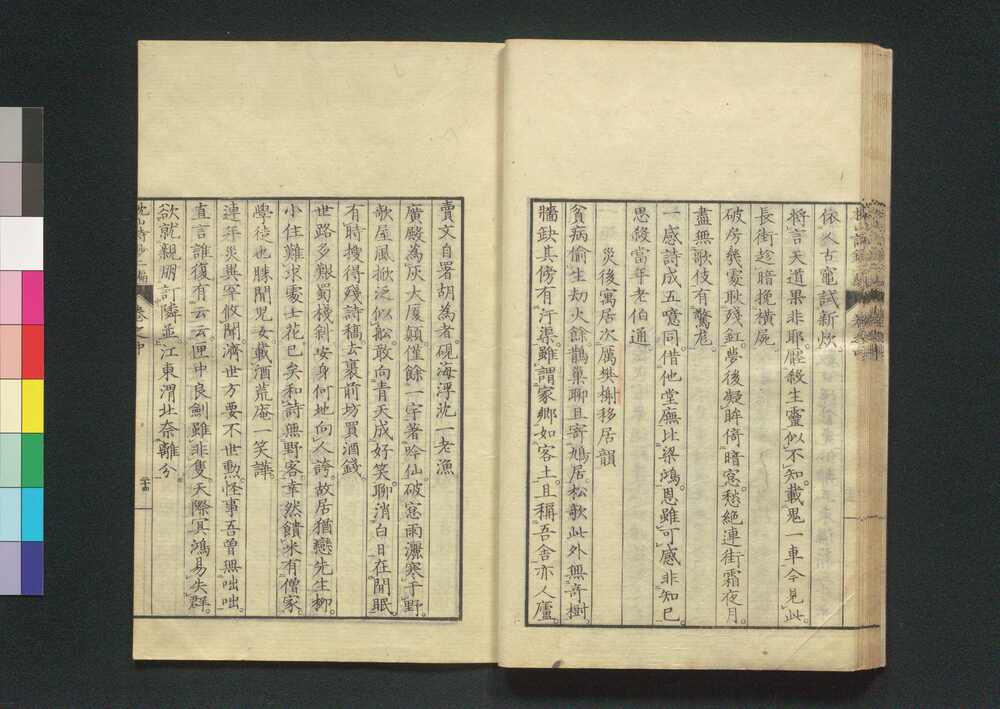 依人古竈試新炊
將言天道果非耶。膣殺生靈似不知。載鬼一車今見此。
長街趁暗挽橫屍
破房幾處耿残釭。夢後凝眸倚暗窓。愁絶連街霜夜月。
盡無歌伎有驚尨。
一感詩成五噫同。借他堂廡比梁鴻。恩雖可感非知已。
思殺當年老伯通。
災後寓居次厲樊榭移居韻
貧病偷生劫火餘。鵲巢聊且寄鳩居。松歌此外無奇樹。
牆缺其傍有汙渠。雖謂家鄉如客土。且稱吾舍亦人廬。
賣文自署胡為者。硯海浮沈一老漁
廣殿為灰大厦顛。僅餘一字著吟仙。破窓雨灑寒于野。
欹屋風掀泛似舩。敢向青天成好笑。聊消白日在閒眠。
有時搜得殘詩稿。去裹前坊買酒錢。
世路多艱蜀棧斜。安身何地向人誇。故居猶戀先生柳。
小住難求處士花。已矣和詩無野客。幸然饋米有僧家。
學徒也勝閒兒女。載酒荒庵一笑譁。
連年災異罕攸聞。濟世方要不世勲。怪事吾曾無咄咄。
直言誰復有云云。匣中良劍雖非隻。天際冥鴻易失群。
欲就親朋訂隣並。江東渭北奈離分。
枕山詩鈔二編
卷之中
二十四